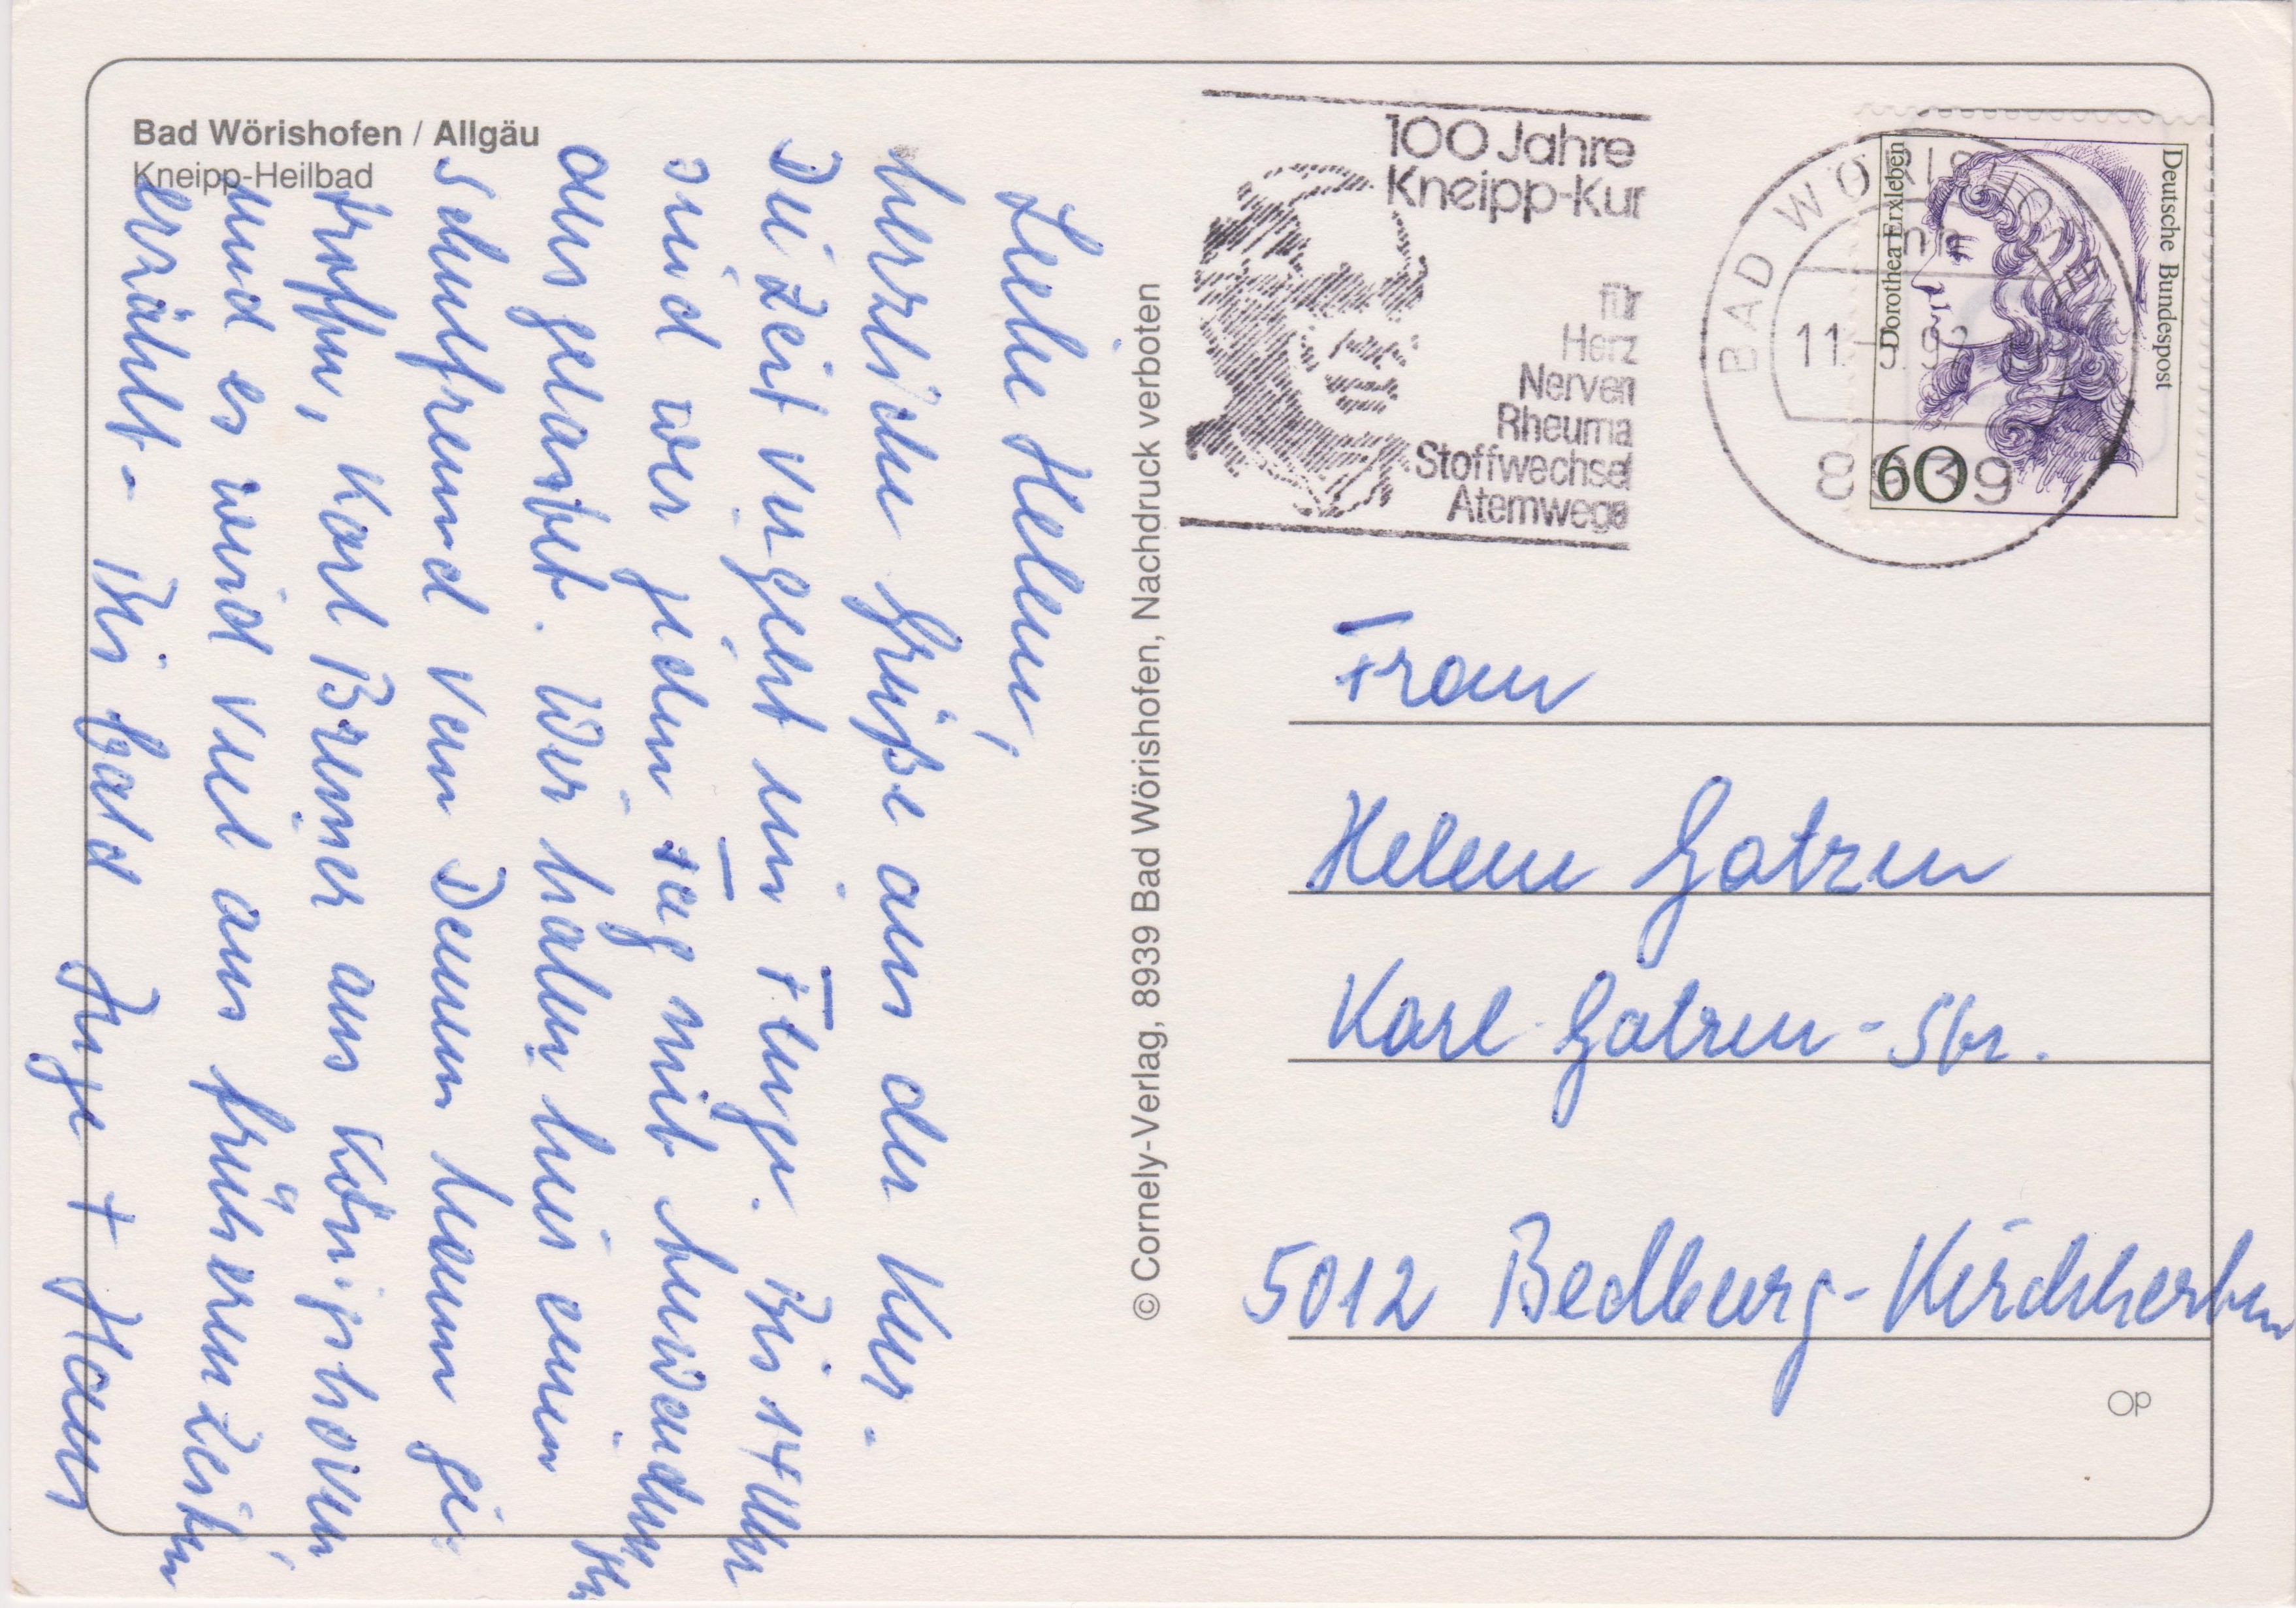 Bad Wörishofen / Allgäu
Kneipp-Heilbad
Liebe Helene,
herzliche Grüße aus der Kur.
Die Zeit vergeht im Fluge. Bis 14 Uhr
sind wir jeden Tag mit
ausgelastet. Wir haben hier einen
Schulfreund von Deinem ge-
troffen, Karl Bremer aus Königshoven
und es wird viel aus früheren Zeiten
erzählt - Bis bald
Inge + Hans
© Cornely-Verlag, 8939 Bad Wörishofen, Nachdruck verboten
100 Jahre
Kneipp-Kur
für
Herz
Nerven
Rheuma
Stoffwechsel
Atemwege
BAD WÖRISHOFEN
11
8939
Dorothea Erxleben
Deutsche Bundespost
60
Frau
Helene Gatzen
Karl-Gatzen-Str.
5012 Bedburg-Kirchherten
OP